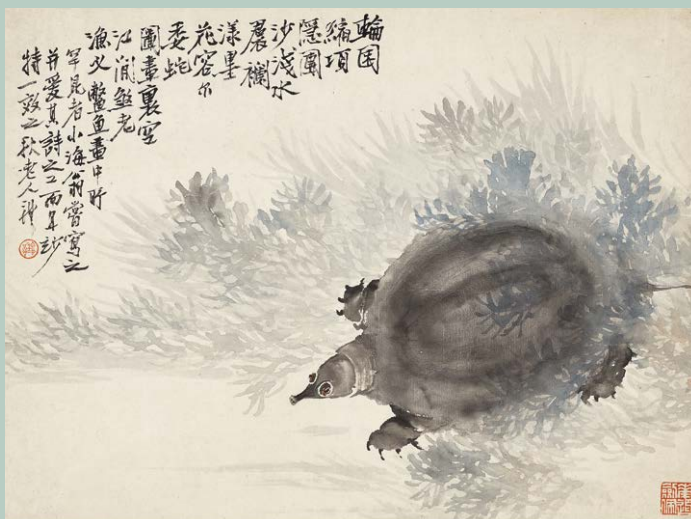 輪囷
縮項
隱圍
沙淺水
襴
漾墨
花容尔
委蛇
圖畫裏空
江閒煞老
漁叉 鱉鱼畫中所
罕見者小海翁嘗寫之
并愛其詩之工而
特一效之 秋老人